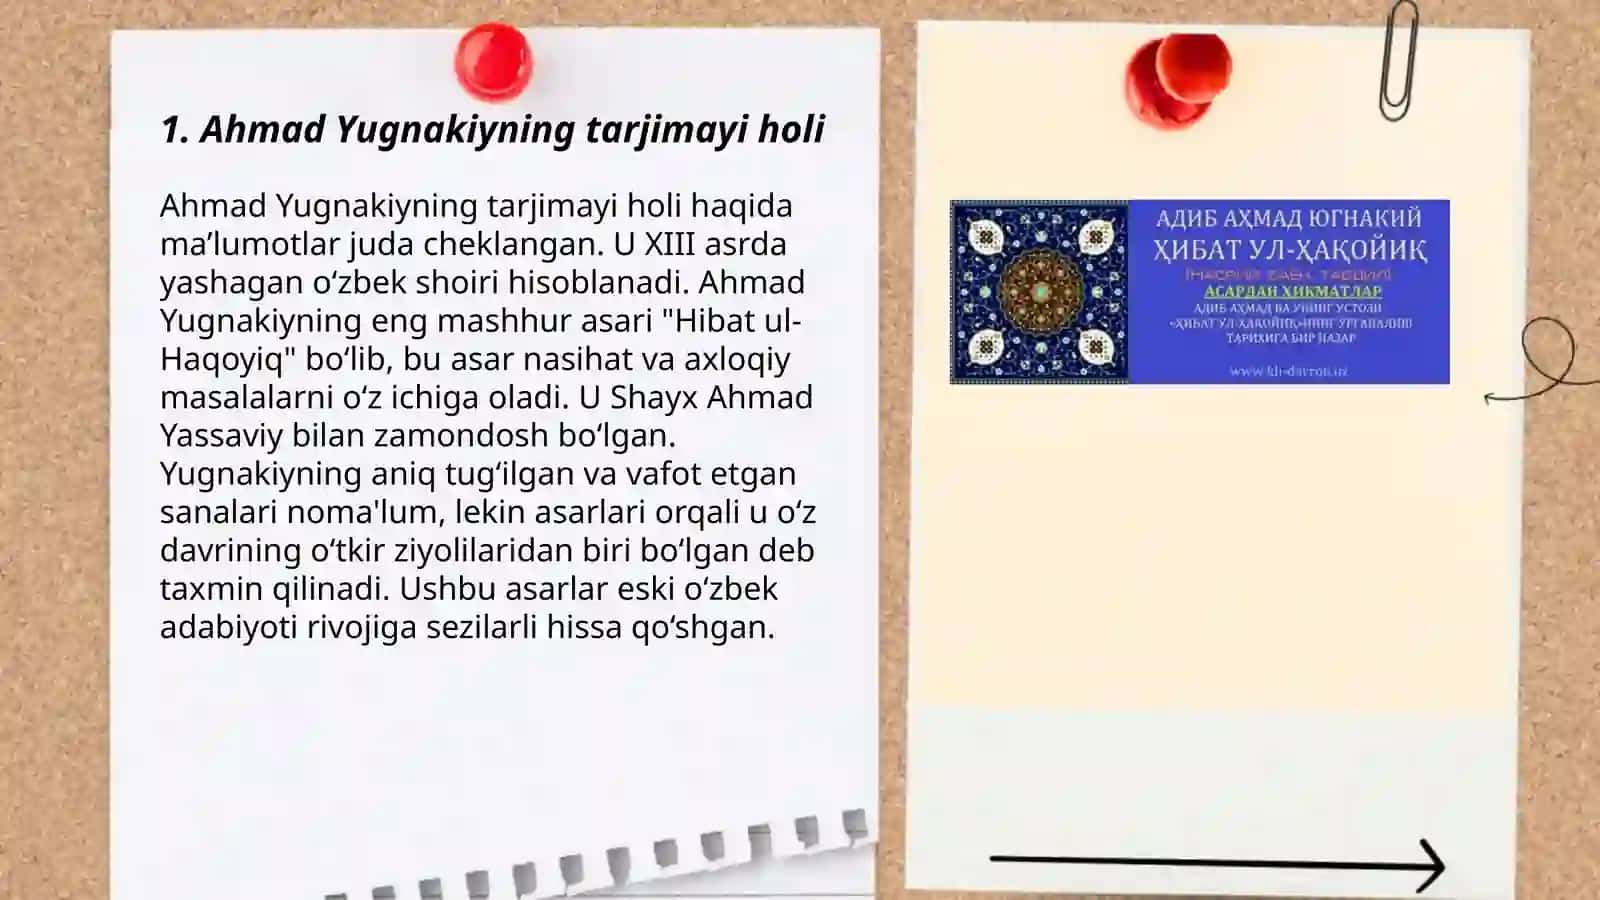 1. Ahmad Yugnakiyning tarjimayi holi
Ahmad Yugnakiyning tarjimayi holi haqida
ma’lumotlar juda cheklangan. U XIII asrda
yashagan o‘zbek shoiri hisoblanadi. Ahmad
Yugnakiyning eng mashhur asari "Hibat ul-
Haqoyiq" bo‘lib, bu asar nasihat va axloqiy
masalalarni o‘z ichiga oladi. U Shayx Ahmad
Yassaviy bilan zamondosh bo‘lgan.
Yugnakiyning aniq tug‘ilgan va vafot etgan
sanalari noma'lum, lekin asarlari orqali u o‘z
davrining o‘tkir ziyolilaridan biri bo‘lgan deb
taxmin qilinadi. Ushbu asarlar eski o‘zbek
adabiyoti rivojiga sezilarli hissa qo‘shgan.
АДИБ АҲМАД ЮГНАКИЙ
ҲИБАТ УЛ-ҲАҚОЙИҚ
АСАРДАН ҲИКМАТЛАР
АДИБ АҲМАД ВА УНИНГ УСТОЗИ
«ҲИБАТ УЛ-ҲАҚОЙИҚ»НИНГ ЎРГАНИЛИШ
ТАРИХИГА БИР НАЗАР
www.kh-davron.uz